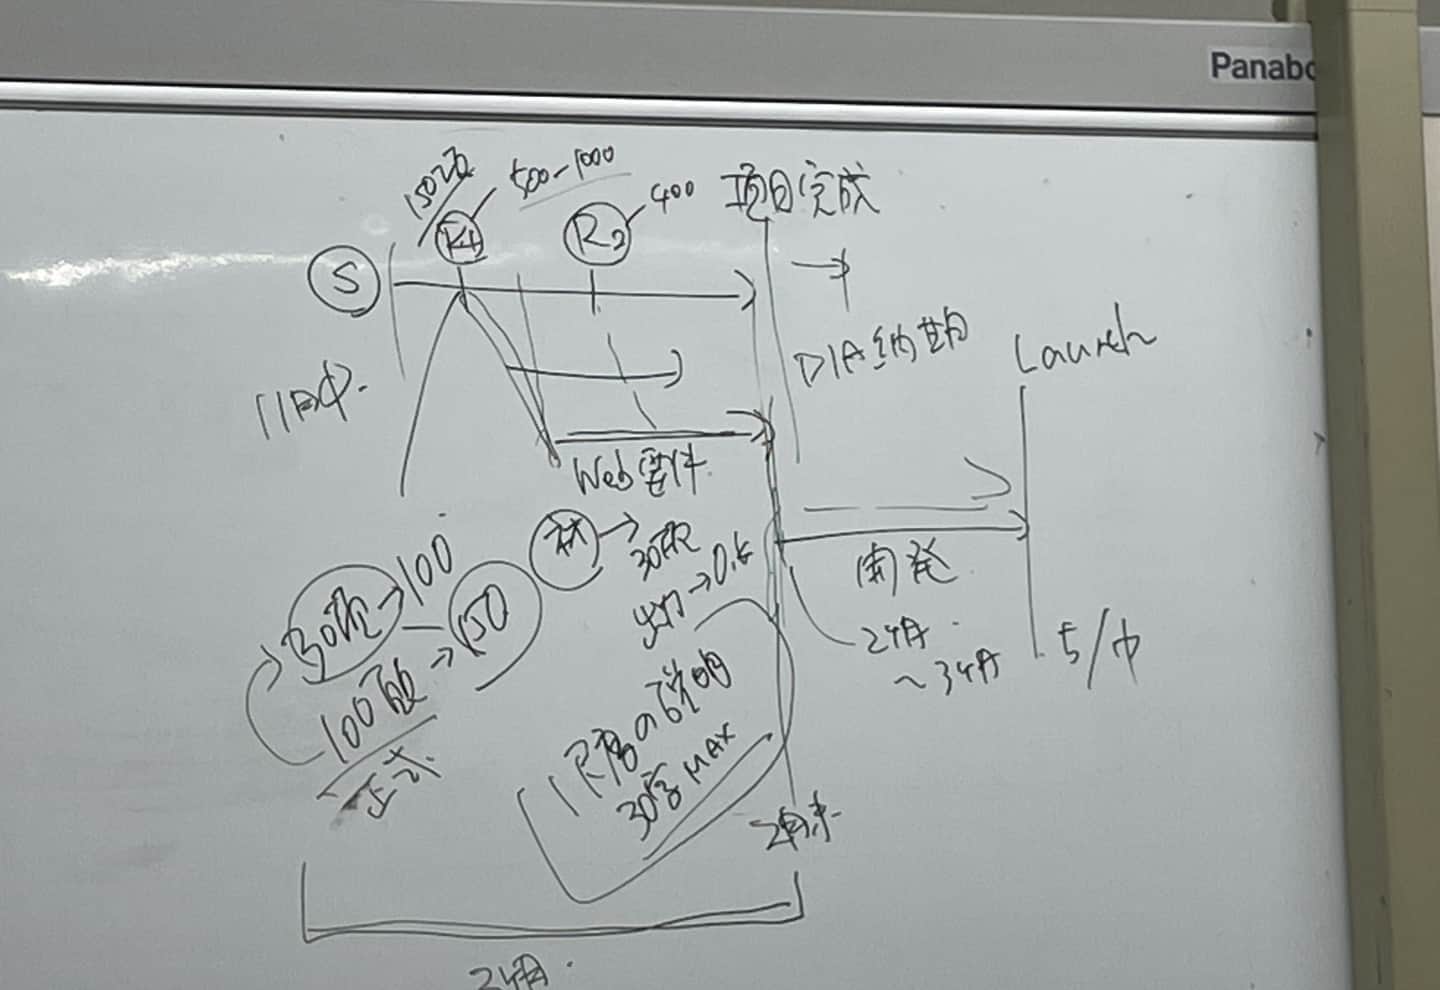 Panabo
150項
500-1000
R1
R2
400
項目完成
S
11月中.
DIA納期
Launch
Web要件
林 → 30項
30項 → 100
100項 → 150
正式
開発
2ヶ月
~3ヶ月
5/中
の説明
MAX
2月末
2ヶ月.